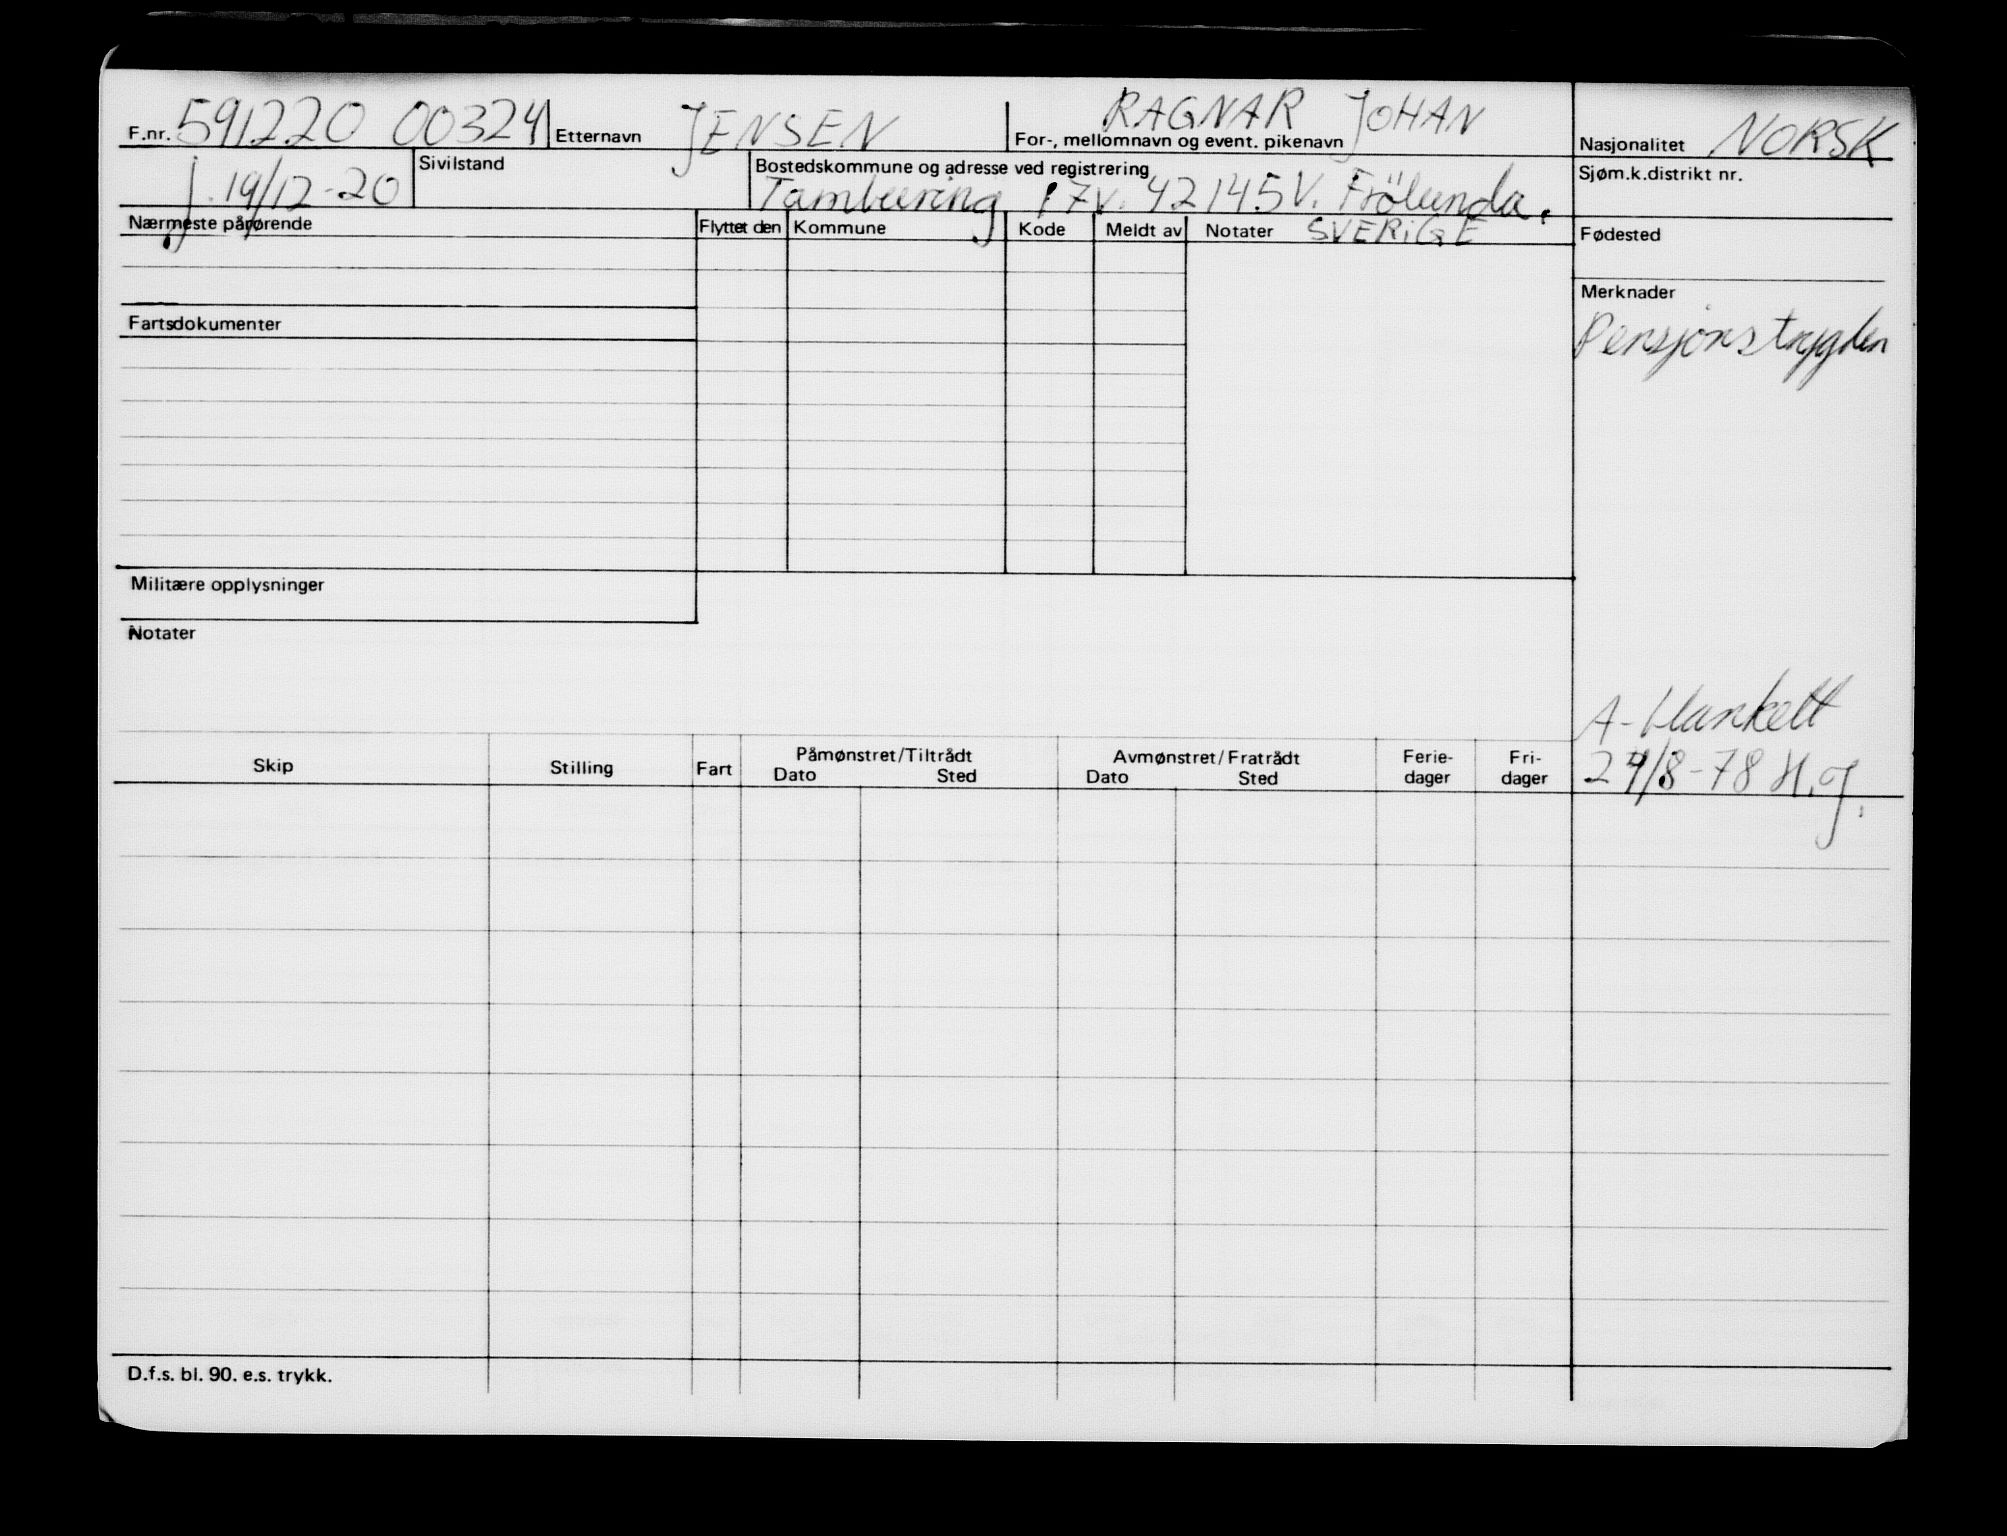 F.nr. 591220 00324 Etternavn JENSEN For-, mellomnavn og event. pikenavn RAGNAR JOHAN Nasjonalitet NORSK
f. 19/12-20 Sivilstand Bostedskommune og adresse ved registrering Sjøm.k.distrikt nr.
17V. 42145 V. Frölunda.
SVERIGE
Nærmeste pårørende Flyttet den Kommune Kode Meldt av Notater Fødested
Merknader
Fartsdokumenter
Pensjonstrygden
Militære opplysninger
Notater
A-blankett
24/8-78 H.J.
Skip Stilling Fart Påmønstret/Tiltrådt Avmønstret/Fratrådt Ferie-dager Fri-dager
Dato Sted Dato Sted
D.f.s. bl. 90. e.s. trykk.